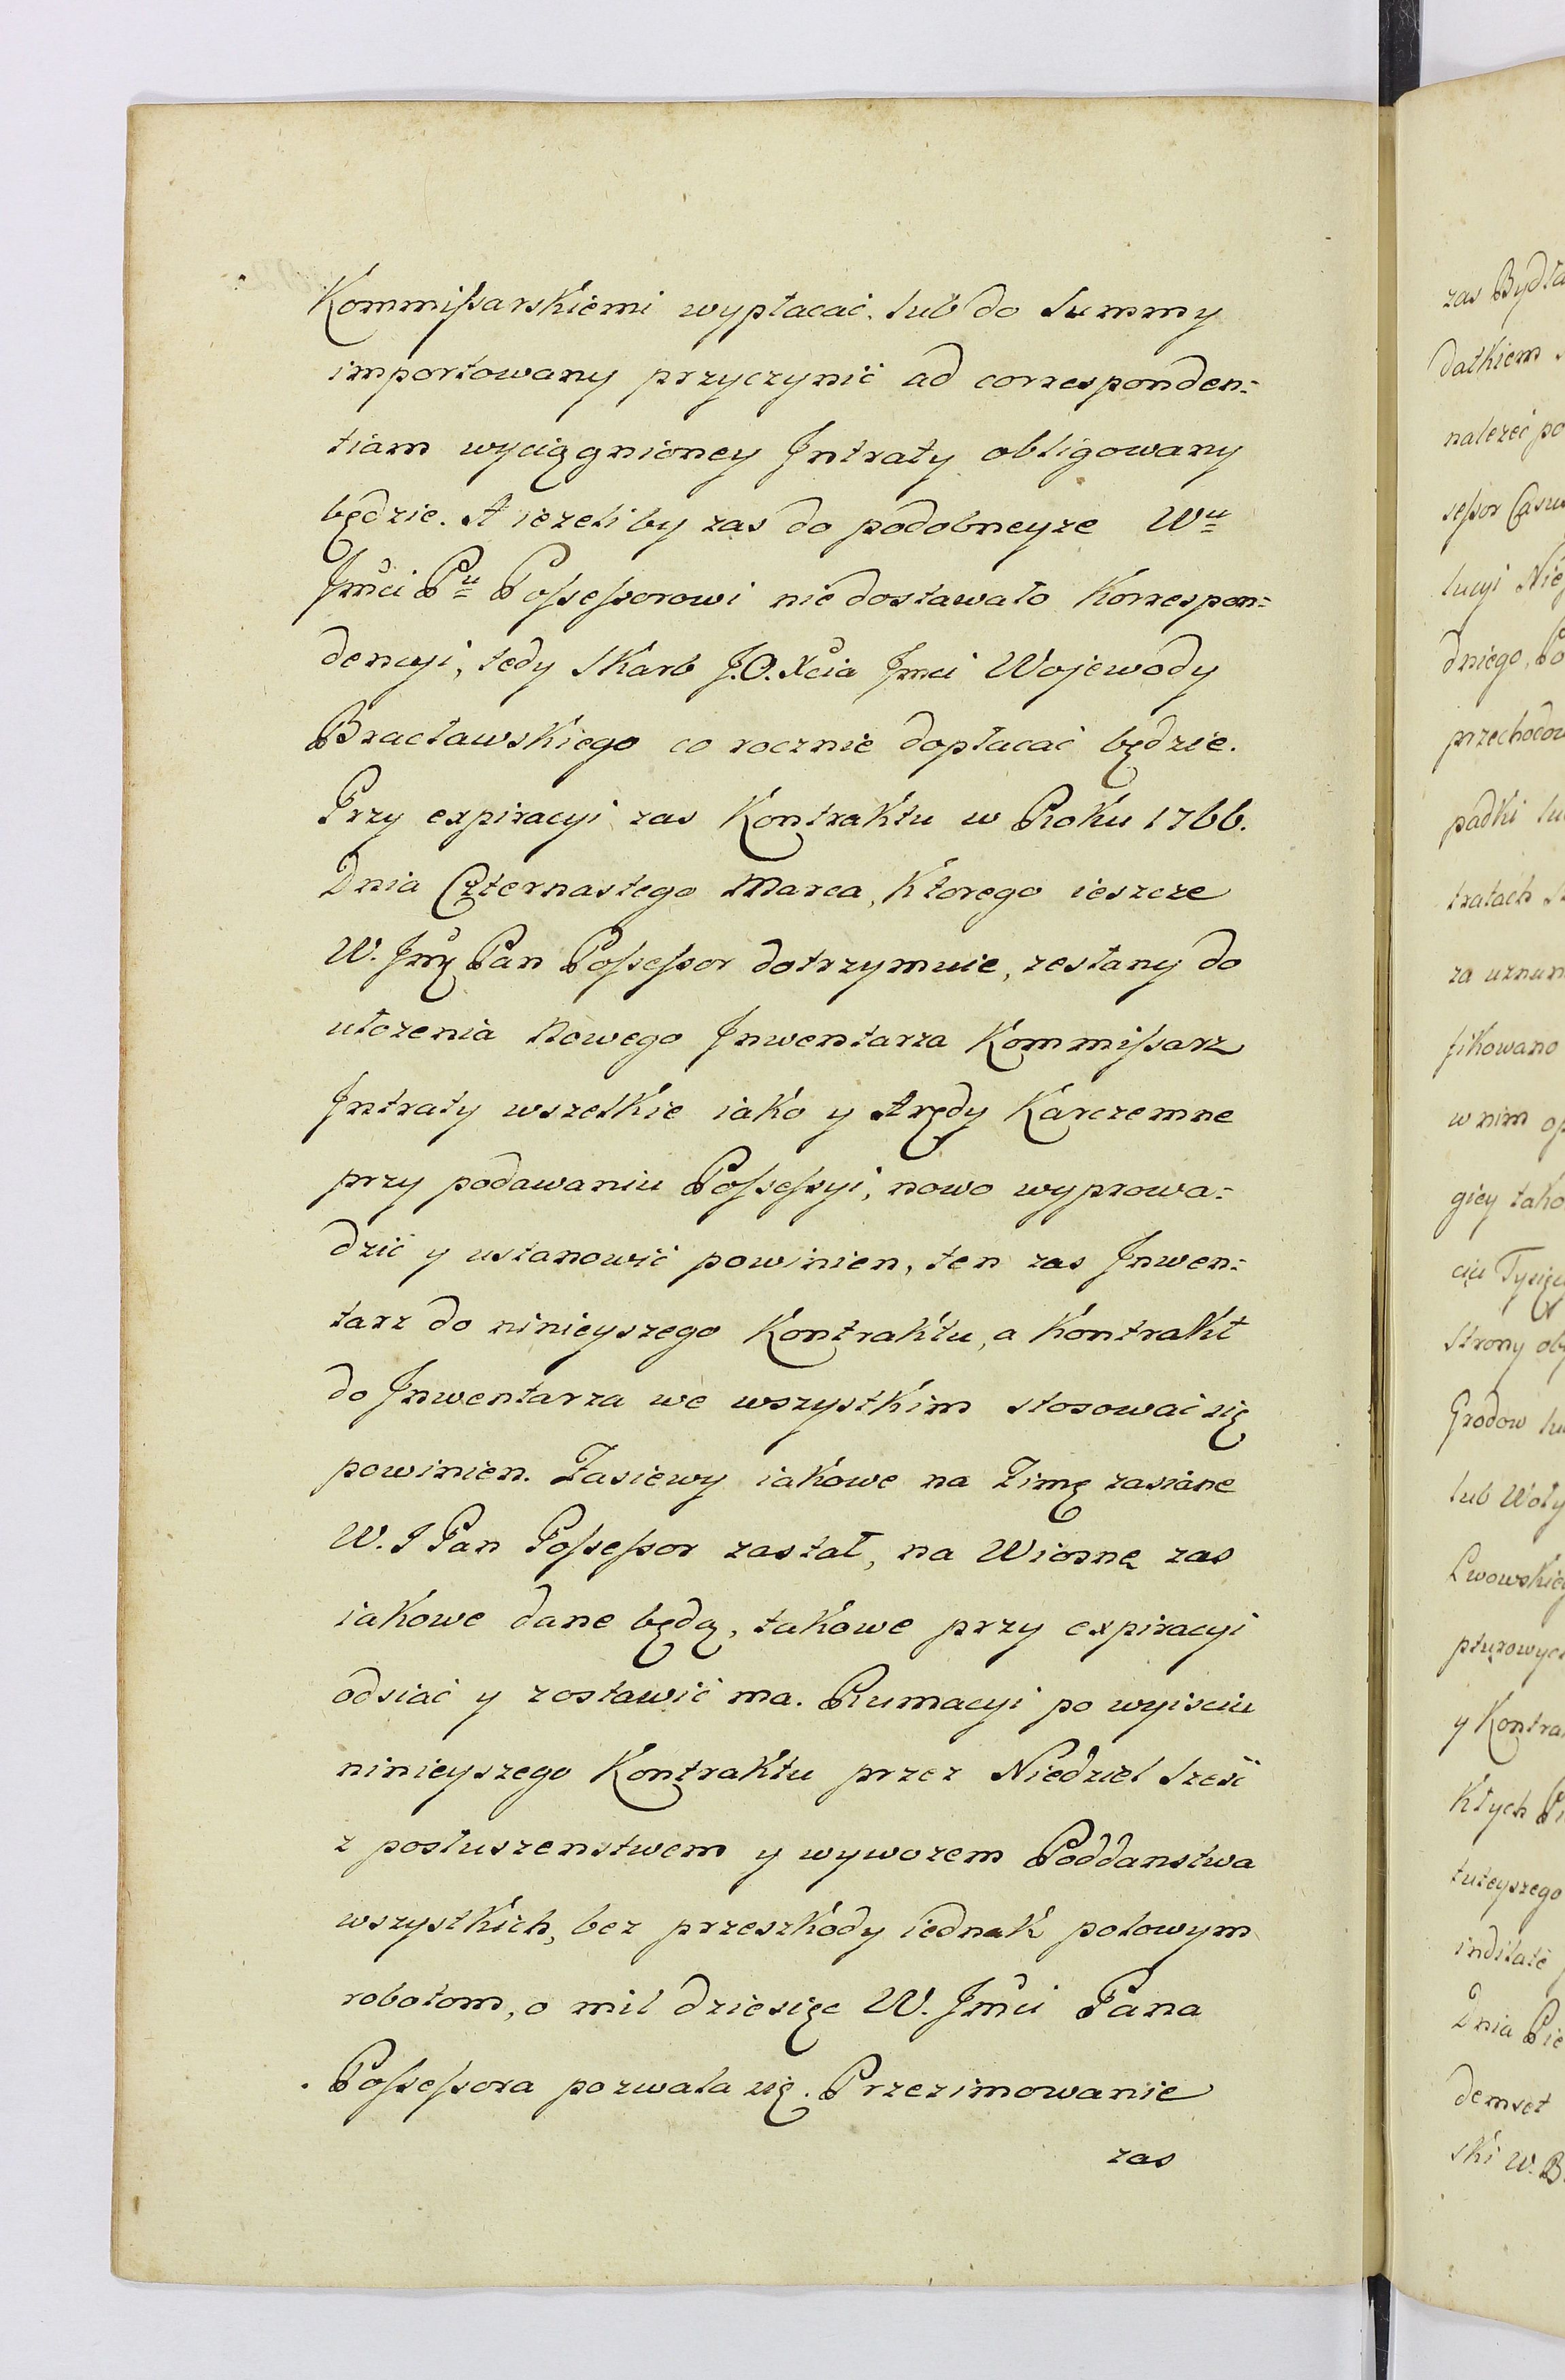 Kommißarskiemi wypłacać. lub do Summy
importowany przyczynić ad corresponden=
tiam wyciągnioney Jntraty obligowany
będzie. A ieżeliby zas do podobneyże Wu
Jmci Pu Poßeßorowi niedostawało Korrespon=
dencyi, tedy Skarb J.O. Xcia Jmci Wojewody
Bracławskiego co rocznie dopłacać będzie.
Przy expiracyi zas Kontraktu w Roku 1766.
Dnia Czternastego Marca, Ktorego ieszcze
W. Jmć Pan Poßeßor dotrzymuie, zesłany do
ułozenia Nowego Jnwentarza Kommißarz
Jntraty wszelkie iako y Arędy Karczemne
przy podawaniu Poßeßyi, nowo wyprowa=
dzić y ustanowić powinien, ten zas Jnwen=
tarz do ninieyszego Kontraktu, a Kontrakt
do Jnwentarza we wszystkim stosować się
powinien. Zasiewy iakowe na Zimę zasiane
W. J Pan Poßeßor zastał, na Wiosnę zas
iakowe dane będą, takowe przy expiracyi
odsiać y zostawić ma. Rumacyi po wyisciu
ninieyszego Kontraktu przez Niedziel Sześć
z posłuszenstwem y wywozem Poddanstwa
wszystkich, bez przeszkody iednak polowym
robotom, o mil dziesięc W. Jmci Pana
Poßeßora pozwala się. Przezimowanie
zas
zas Bydła
datkiem
nalezeć po
seßor Casu
lucyi
dniego,
przechodow
padki
tratach
za uznan
fikowano
w nim
giey tako
ciu Tysią
Strony
Grodow
lub Woły
Lwowskie
pturowych
y Kontra
Kłych
tuteyszego
indilatè
Dnia Pie
demset
ski W. B